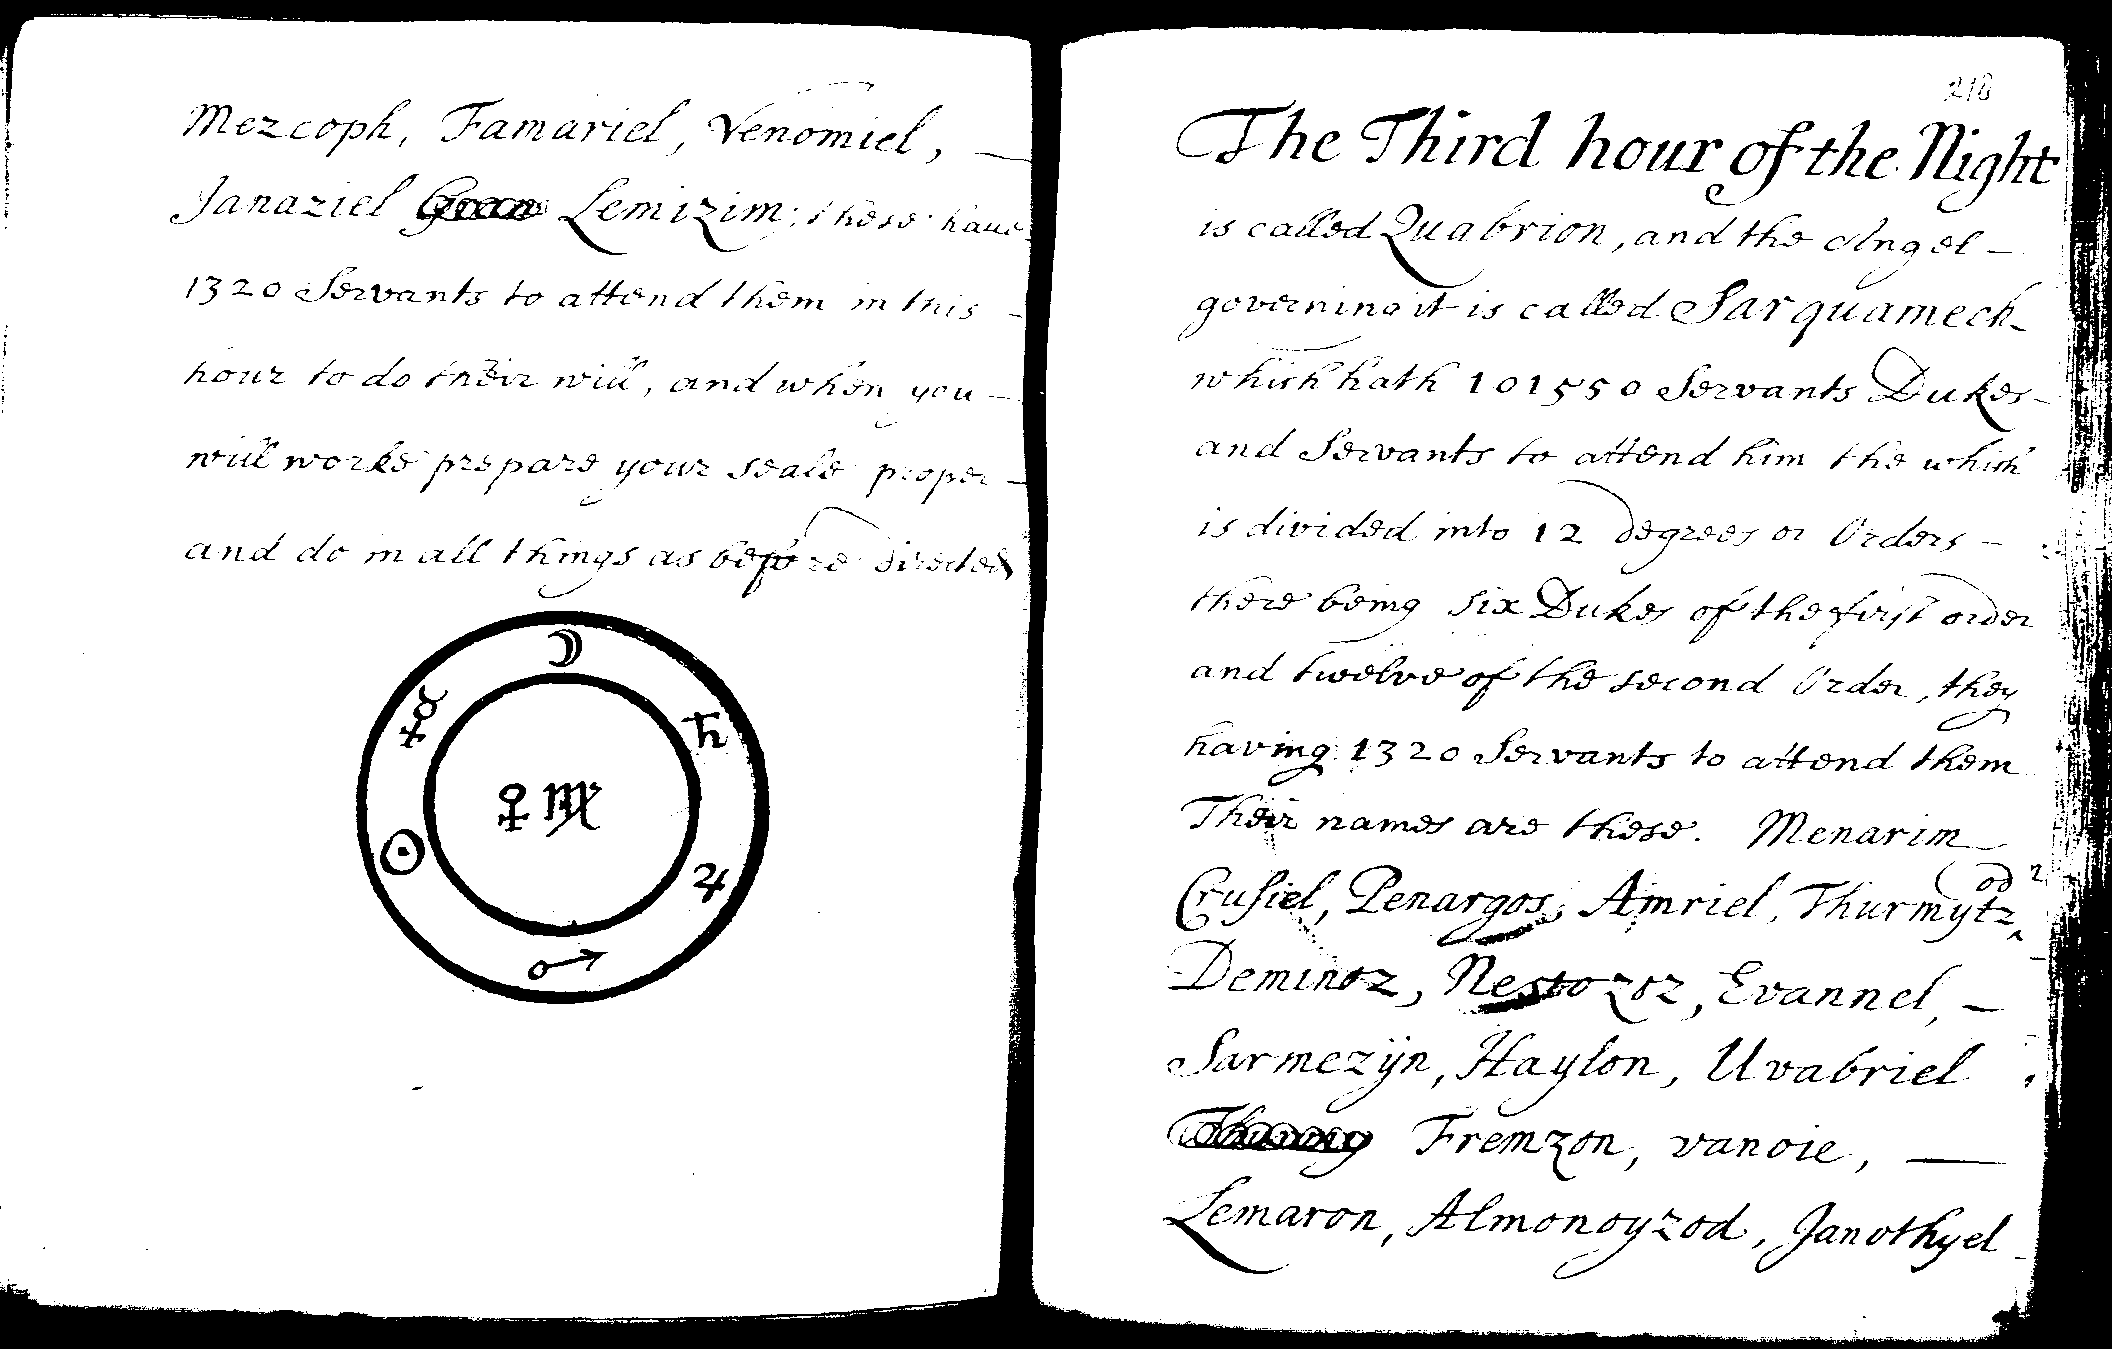 Mezcoph, Famariel, Venomiel, —
Janaziel Lemizim; these have
1320 Servants to attend them in this –
hour to do their will, and when you –
will worke prepare your seale proper –
and do in all things as before directed
☽
☿
♄
♀ ♍
☉
♃
♂
218
The Third hour of the Night
is called Quabrion, and the Angel –
governing it is called Sarquamech
which hath 101550 Servants Dukes –
and Servants to attend him the which
is divided into 12 degrees or Orders –
there being six Dukes of the first order
and twelve of the second Order, they
having 1320 Servants to attend them
Their names are these. Menarim
Crusiel, Penargos, Amriel, Thurmytz
od
Deminoz, Nestozoz, Evannel, –
Sarmezyn, Haylon, Uvabriel
Thurmy Fremzon, vanoie, —
Lemaron, Almonoyzod, Janothyel